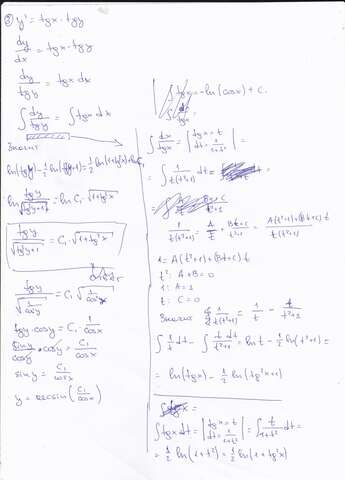 ③ y' = tgx · tgy
dy/dx = tgx · tgy
dy/tgy = tgx dx
∫ dy/tgy = ∫ tgx dx
Значит
ln(tgy) - 1/2 ln(tg²y+1) = 1/2 ln(1+tg²x) + ln C₁
ln tgy/√(tg²y+1) = ln C₁ · √(1+tg²x)
tgy/√(tg²y+1) = C₁ · √(1+tg²x)
tgy/√(1/cos²y) = C₁ √(1/cos²x)
tgy · cosy = C₁ · 1/cosx
siny/cosy · cosy = C₁/cosx
siny = C₁/cosx
y = arcsin(C₁/cosx)
∫ tgx = -ln(cosx) + C.
∫ dx/tgx = | tgx = t dt = 1/(1+t²) | =
= ∫ 1/(t(t²+1)) dt =
1/(t(t²+1)) = A/t + (Bt+C)/(t²+1) = (A(t²+1)+(Bt+C)t)/(t(t²+1))
1 = A(t²+1)+(Bt+C)t
t²: A+B=0
1: A=1
t: C=0
Значит 1/(t(t²+1)) = 1/t - t/(t²+1)
∫ 1/t dt - ∫ t dt/(t²+1) = ln t - 1/2 ln(t²+1) =
= ln(tgx) - 1/2 ln(tg²x+1)
∫ tgx dt = | tgx = t dt = 1/(1+t²) | = ∫ t/(1+t²) dt =
= 1/2 ln(1+t²) = 1/2 ln(1+tg²x)